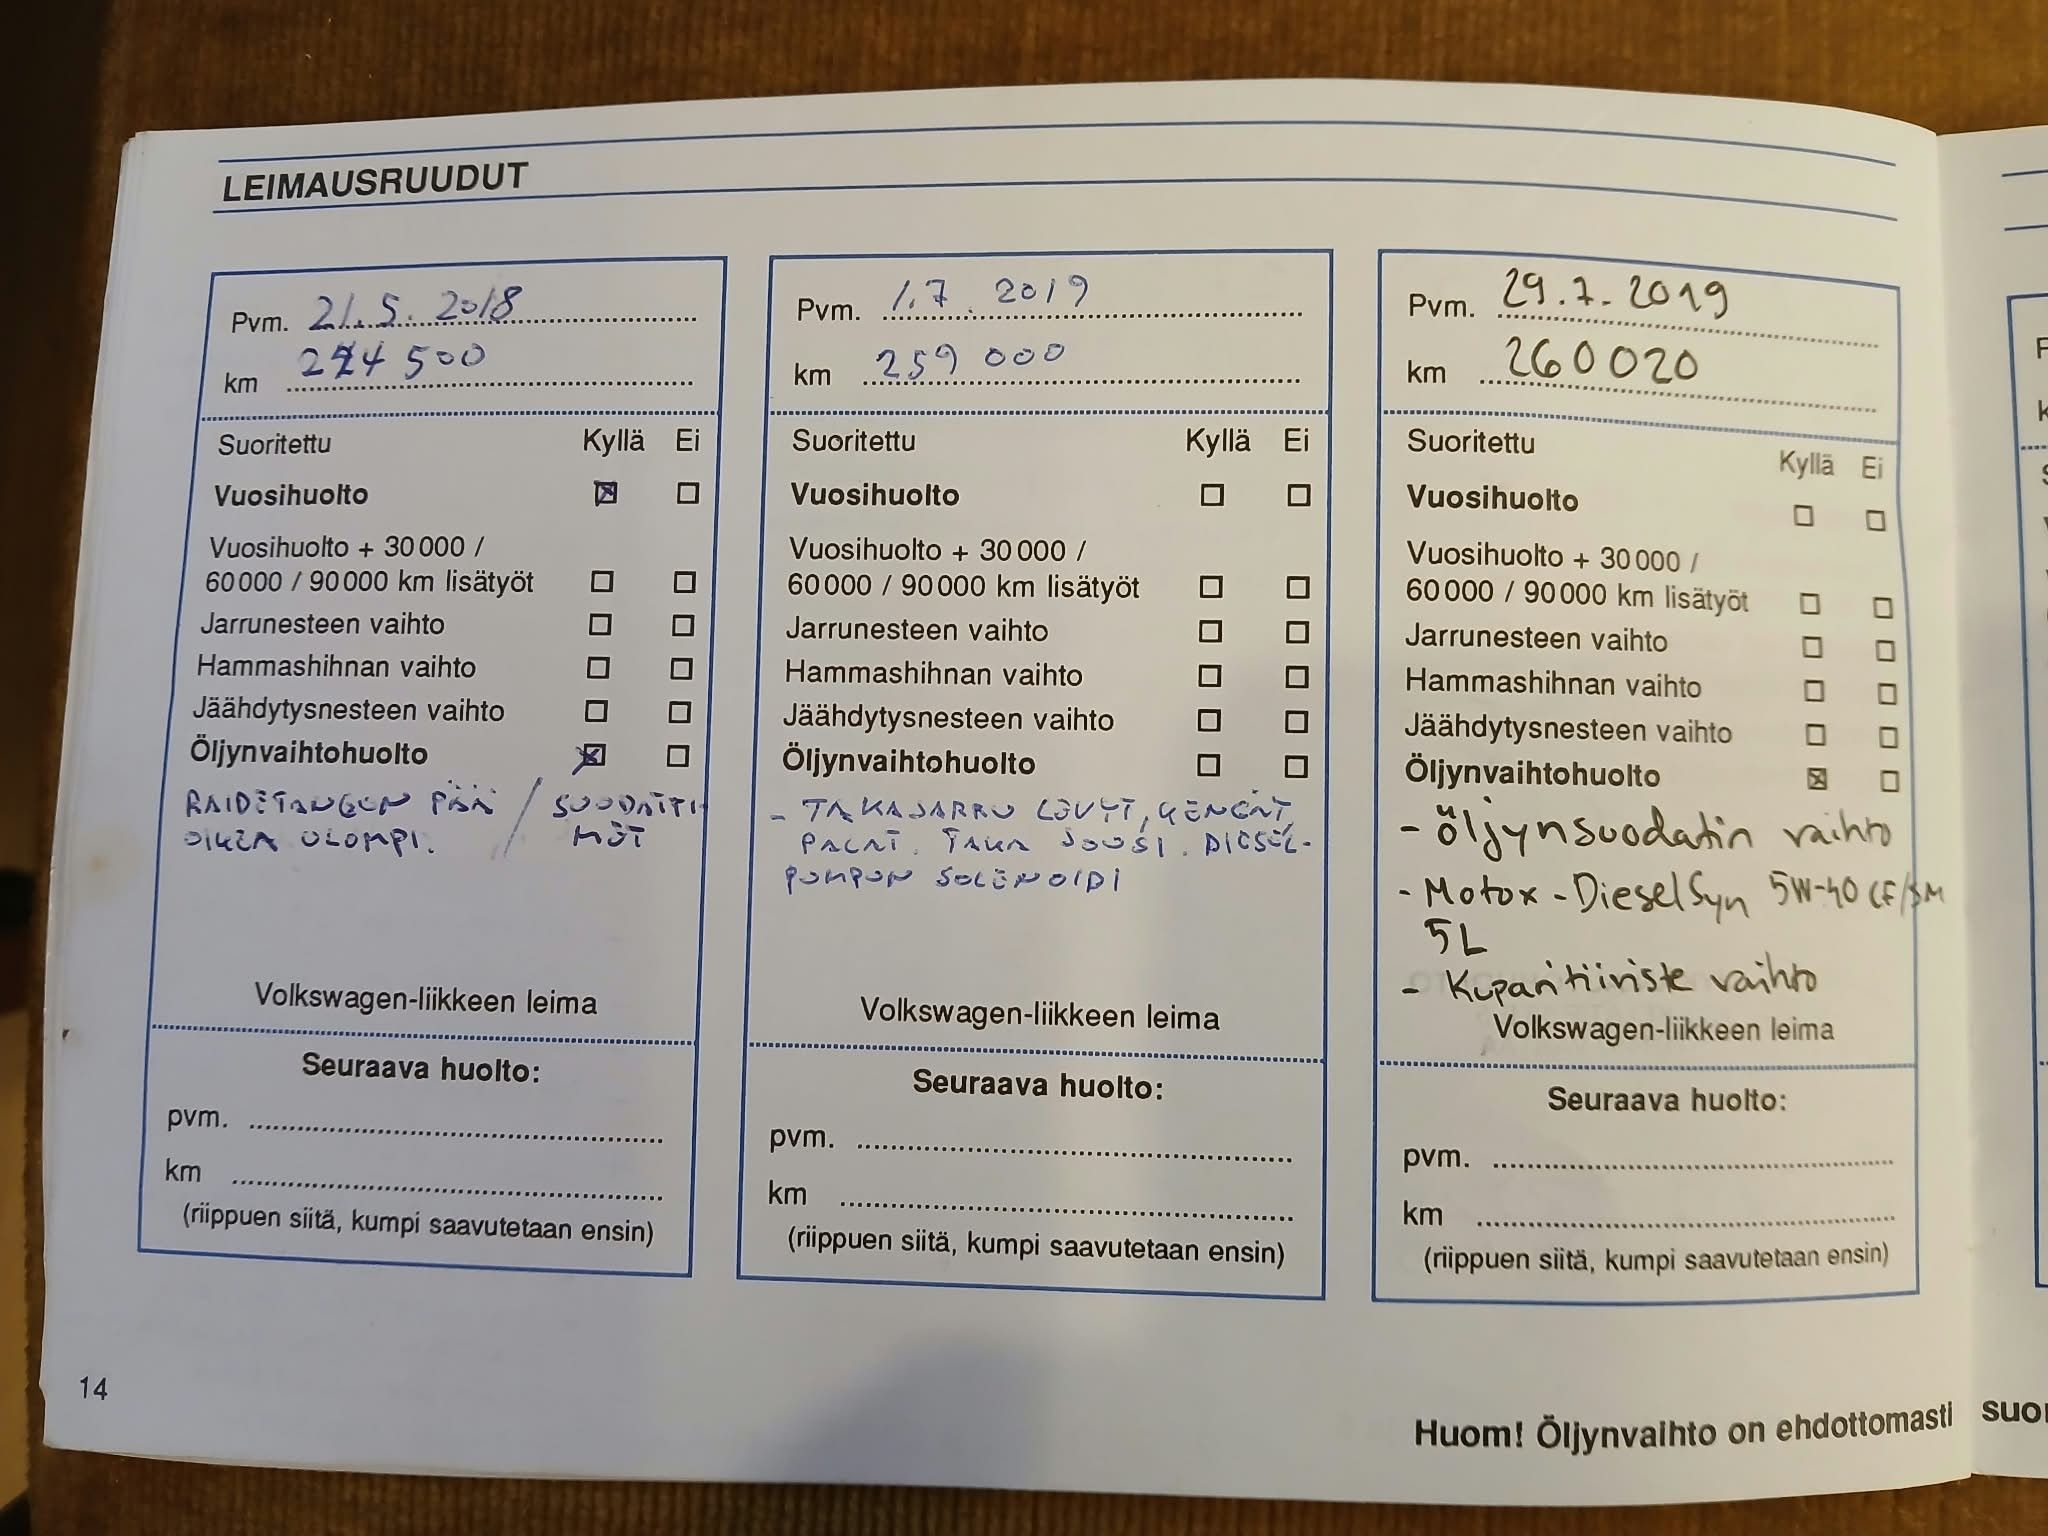 LEIMAUSRUUDUT
Pvm. 21.5.2018
km 500
Suoritettu Kyllä Ei
Vuosihuolto
Vuosihuolto + 30 000 /
60 000 / 90 000 km lisätyöt
Jarrunesteen vaihto
Hammashihnan vaihto
Jäähdytysnesteen vaihto
Öljynvaihtohuolto
RAIDETANGON PÄÄ / SUODATTI-
OIKEA ULOMPI. MET
Volkswagen-liikkeen leima
Seuraava huolto:
pvm.
km
(riippuen siitä, kumpi saavutetaan ensin)
Pvm. 1.7.2019
km 259 000
Suoritettu Kyllä Ei
Vuosihuolto
Vuosihuolto + 30 000 /
60 000 / 90 000 km lisätyöt
Jarrunesteen vaihto
Hammashihnan vaihto
Jäähdytysnesteen vaihto
Öljynvaihtohuolto
- TAKAJARRU LEVYT,
PALAT. TAKA JOUSI. DIESEL-
PUMPUN SOLENOIDI
Volkswagen-liikkeen leima
Seuraava huolto:
pvm.
km
(riippuen siitä, kumpi saavutetaan ensin)
Pvm. 29.7.2019
km 260020
Suoritettu Kyllä Ei
Vuosihuolto
Vuosihuolto + 30 000 /
60 000 / 90 000 km lisätyöt
Jarrunesteen vaihto
Hammashihnan vaihto
Jäähdytysnesteen vaihto
Öljynvaihtohuolto
- öljynsuodatin vaihto
- Motox - DieselSyn 5W-40 CF/SM
5L
- Kuparitiiviste vaihto
Volkswagen-liikkeen leima
Seuraava huolto:
pvm.
km
(riippuen siitä, kumpi saavutetaan ensin)
14
Huom! Öljynvaihto on ehdottomasti